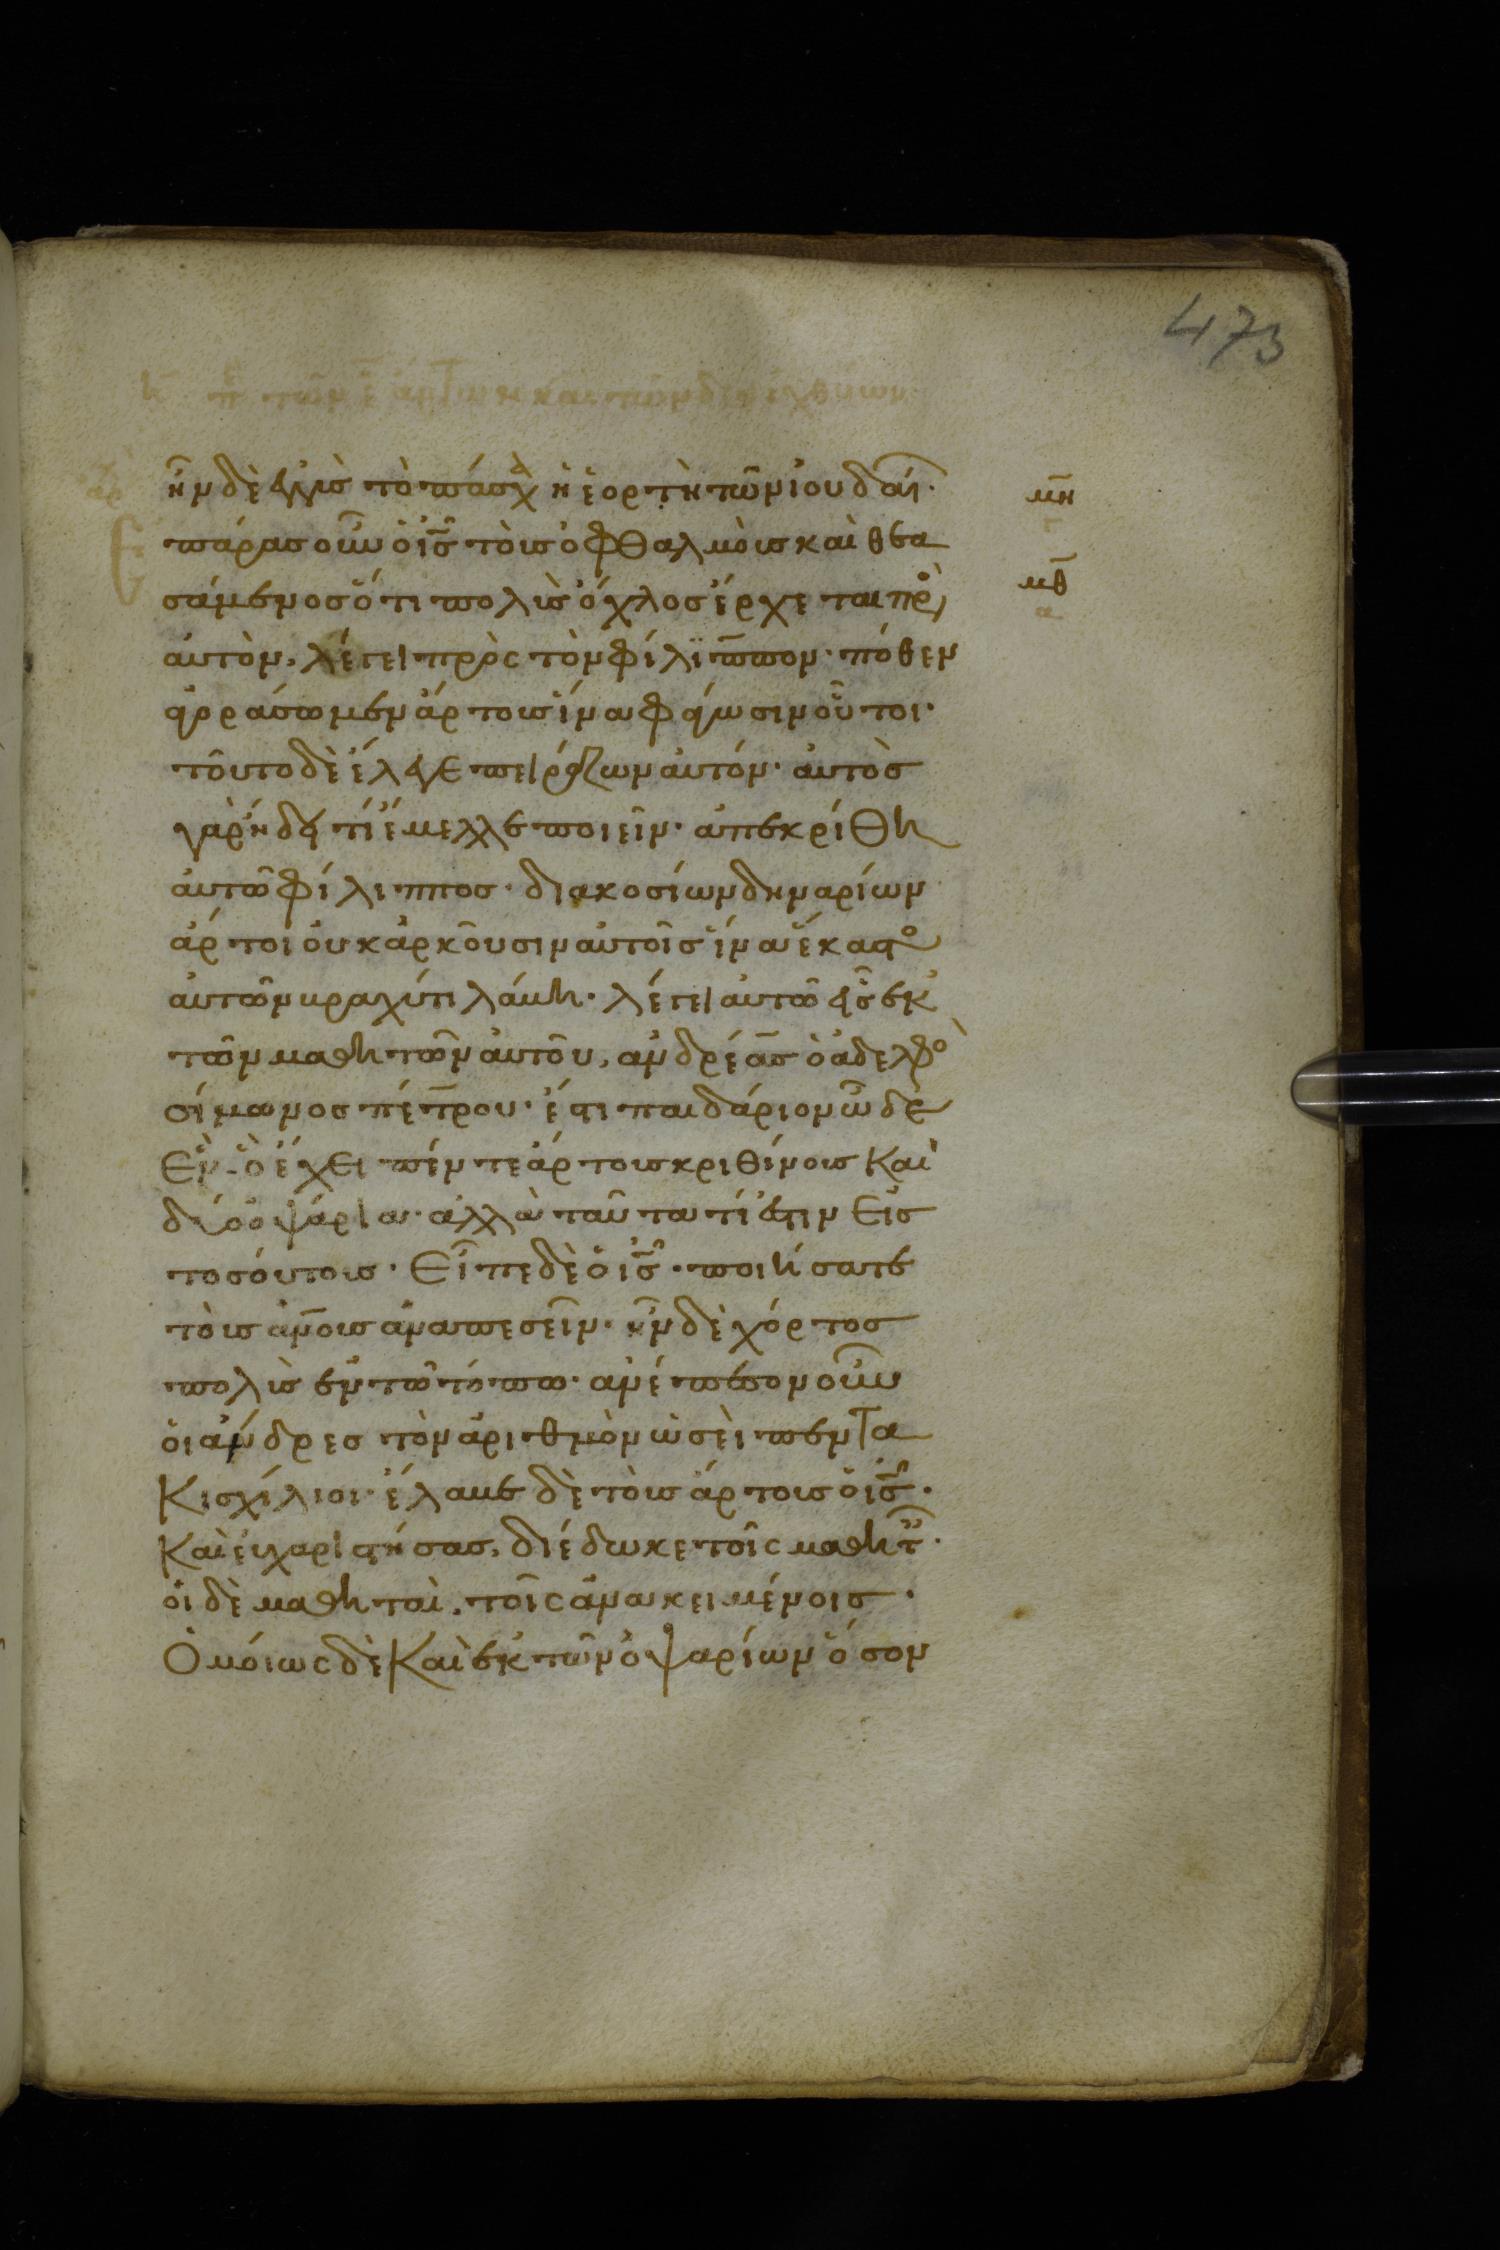 473
η π̅ τῶν ε̅ ἄρτων καὶ τῶν δύο ἰχθύων
ἦν δὲ ἐγγὺς τὸ πάσχα ἡ ἑορτὴ τῶν ἰουδαί·
μη
Ε
πάρας οὖν ὁ ἰς̅ τοὺς ὀφθαλμοὺς καὶ θεα
μθ
α
σάμενος ὅτι πολὺς ὄχλος ἔρχεται πρὸ
αὐτὸν, λέγει πρὸς τὸν φίλϊππον· πόθεν
ἀγοράσωμεν ἄρτους ἵνα φάγωσιν οὗτοι·
τοῦτο δὲ ἔλεγε πειράζων αὐτόν· αὐτὸς
γὰρ ἤδει τί ἔμελλε ποιεῖν· ἀπεκρίθη
αὐτῶ φίλιππος· διακοσίων δηναρίων
ἄρτοι οὐκ ἀρκοῦσιν αὐτοῖς ἵνα ἕκαστο
αὐτῶν βραχύ τι λάβη· λέγει αὐτῶ εἷς ἐκ
τῶν μαθητῶν αὐτοῦ, ἀνδρέας ὁ ἀδελφὸ
σίμωνος πέτρου· ἔστι παιδάριον ὧδε
ἓν ὃ ἔχει πέντε ἄρτους κριθίνους καὶ
δύο ὀψάρια· ἀλλὰ ταῦτα τί ἐστιν εἰς
τοσούτους· εἶπε δὲ ὁ ἰς̅· ποιήσατε
τοὺς ἀν̅ους ἀναπεσεῖν· ἦν δὲ χόρτος
πολὺς ἐν τῶ τόπω· ἀνέπεσον οὖν
οἱ ἄνδρες τὸν ἀριθμὸν ὡσεὶ πεντα
κισχίλιοι· ἔλαβε δὲ τοὺς ἄρτους ὁ ἰς̅·
καὶ εὐχαριστήσας, διέδωκε τοῖς μαθητ·
οἱ δὲ μαθηταὶ, τοῖς ἀνακειμένοις·
ὁμοίως δὲ καὶ ἐκ τῶν ὀψαρίων ὅσον